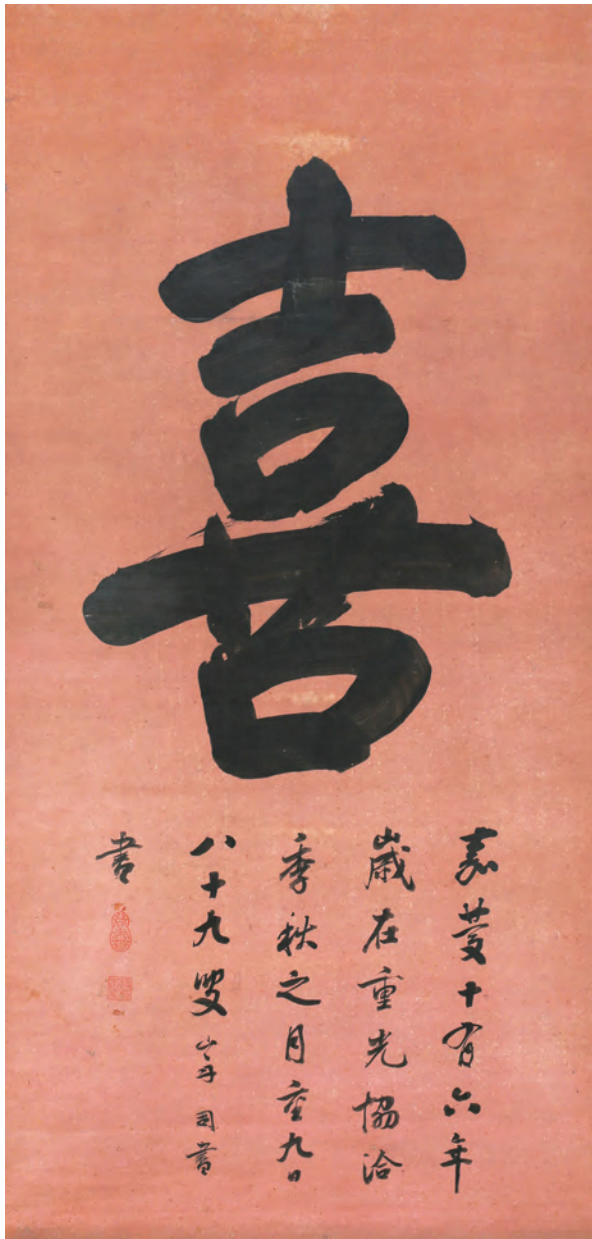 喜
嘉慶十有六年
歲在重光協洽
季秋之月重九日
八十九叟山舟同書
書